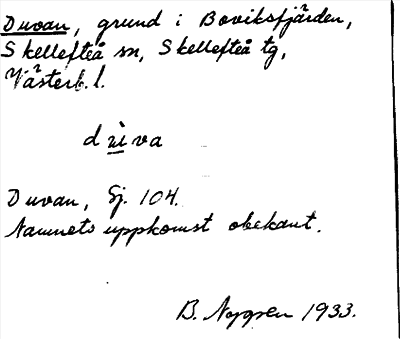 Duvan, grund i Boviksfjärden,
Skellefteå sn, Skellefteå tg,
Västerb. l.
Duvan, Sj. 104.
Namnets uppkomst obekant.
B. Nygren 1933.